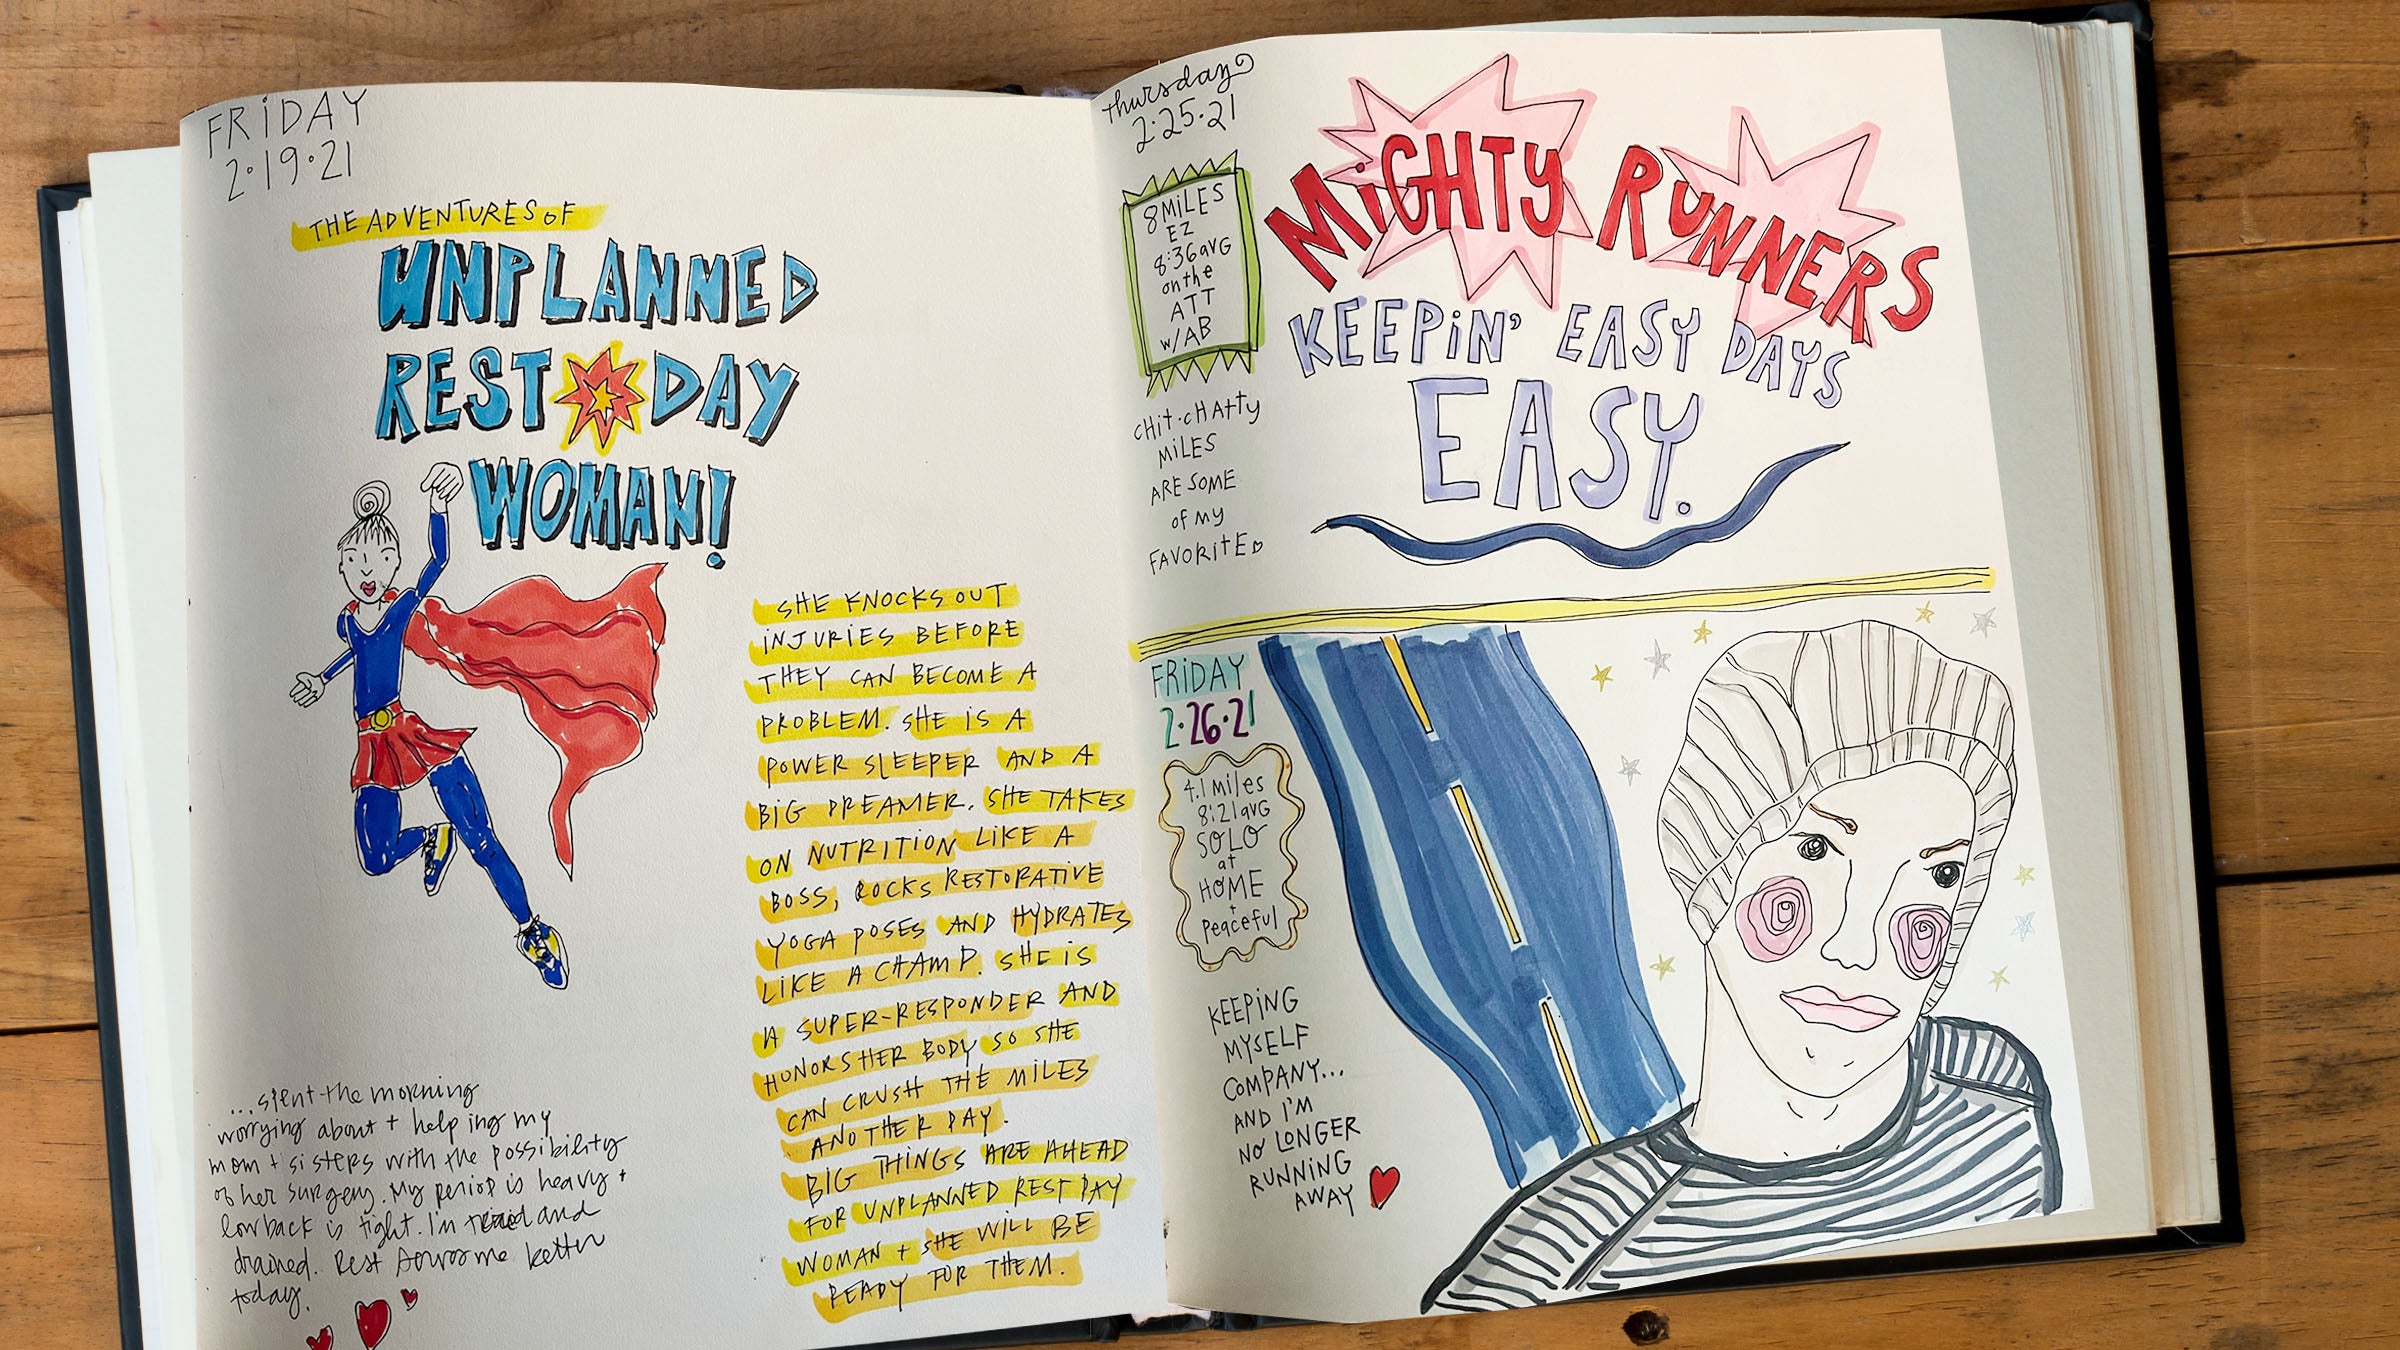 FRiDAY
2·19·21
THE ADVENTURES OF
UNPLANNED
REST DAY
WOMAN!
SHE KNOCKS OUT
INJURIES BEFORE
THEY CAN BECOME A
PROBLEM. SHE IS A
POWER SLEEPER AND A
BIG DREAMER. SHE TAKES
ON NUTRITION LIKE A
BOSS, ROCKS RESTORATIVE
YOGA POSES AND HYDRATES
LIKE A CHAMP. SHE IS
A SUPER-RESPONDER AND
HONORS HER BODY SO SHE
CAN CRUSH THE MILES
ANOTHER DAY.
BIG THINGS ARE AHEAD
FOR UNPLANNED REST DAY
WOMAN + SHE WILL BE
READY FOR THEM.
...spent the morning
worrying about + helping my
mom + sisters with the possibility
of her surgery. My period is heavy +
low back is tight. I'm tired and
drained. Rest serves me better
today.
thursday
2·25·21
8 MiLES
EZ
8:36 avG
on the
ATT
w/AB
CHit·CHAtty
MiLES
ARE SOME
of my
FAVORitE
MiGHTY RUNNERS
KEEPiN' EASY DAYS
EASY.
FRiDAY
2·26·21
4.1 miles
8:21 avG
SOLO
at
HOME
+
Peaceful
KEEPiNG
MYSELF
COMPANY...
AND I'M
NO LONGER
RUNNiNG
AWAY